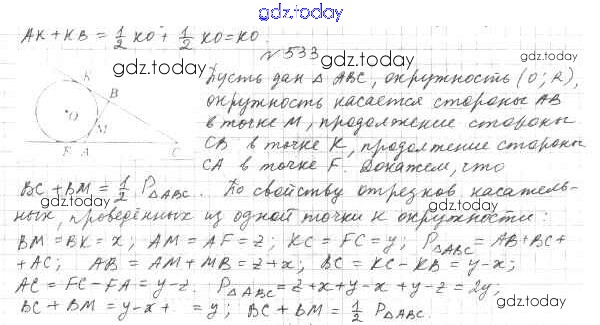 gdz.today
AK + KB = 1/2 KO + 1/2 KO = KO.
№ 533
gdz.today gdz.today
Пусть дан △ ABC, окружность (O; R),
окружность касается стороны AB
в точке M, продолжение стороны
CB в точке K, продолжение стороны
CA в точке F. Докажем, что
K
B
O
M
F A C
gdz.today gdz.today
BC + BM = 1/2 P△ABC. По свойству отрезков касатель-
gdz.today gdz.today
ных, проведённых из одной точки к окружности:
BM = BK = x; AM = AF = z; KC = FC = y; P△ABC = AB + BC +
+ AC; AB = AM + MB = z + x; BC = KC - KB = y - x;
gdz.today gdz.today
AC = FC - FA = y - z. P△ABC = z + x + y - x + y - z = 2y;
BC + BM = y - x + = y; BC + BM = 1/2 P△ABC.
gdz.today